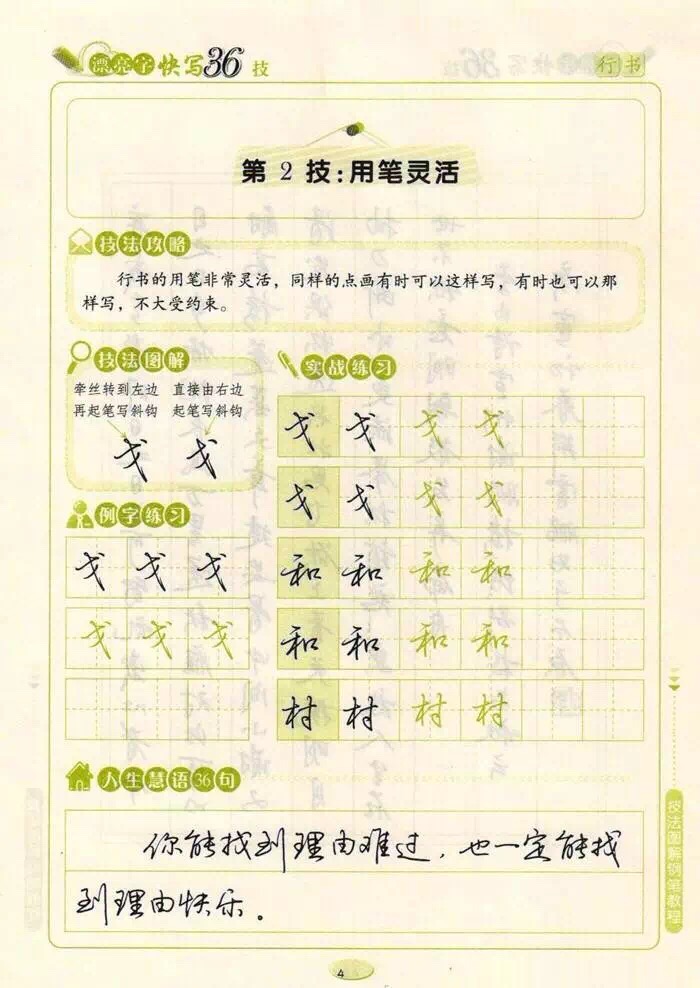 漂亮字快写36技
行书
第2技：用笔灵活
技法攻略
行书的用笔非常灵活，同样的点画有时可以这样写，有时也可以那
样写，不大受约束。
技法图解
牵丝转到左边 直接由右边
再起笔写斜钩 起笔写斜钩
戈 戈
实战练习
戈 戈 戈 戈
戈 戈 戈 戈
和 和 和 和
和 和 和 和
村 村 村 村
例字练习
戈 戈 戈
戈 戈 戈
人生慧语36句
你能找到理由难过，也一定能找
到理由快乐。
技法图解钢笔教程
4